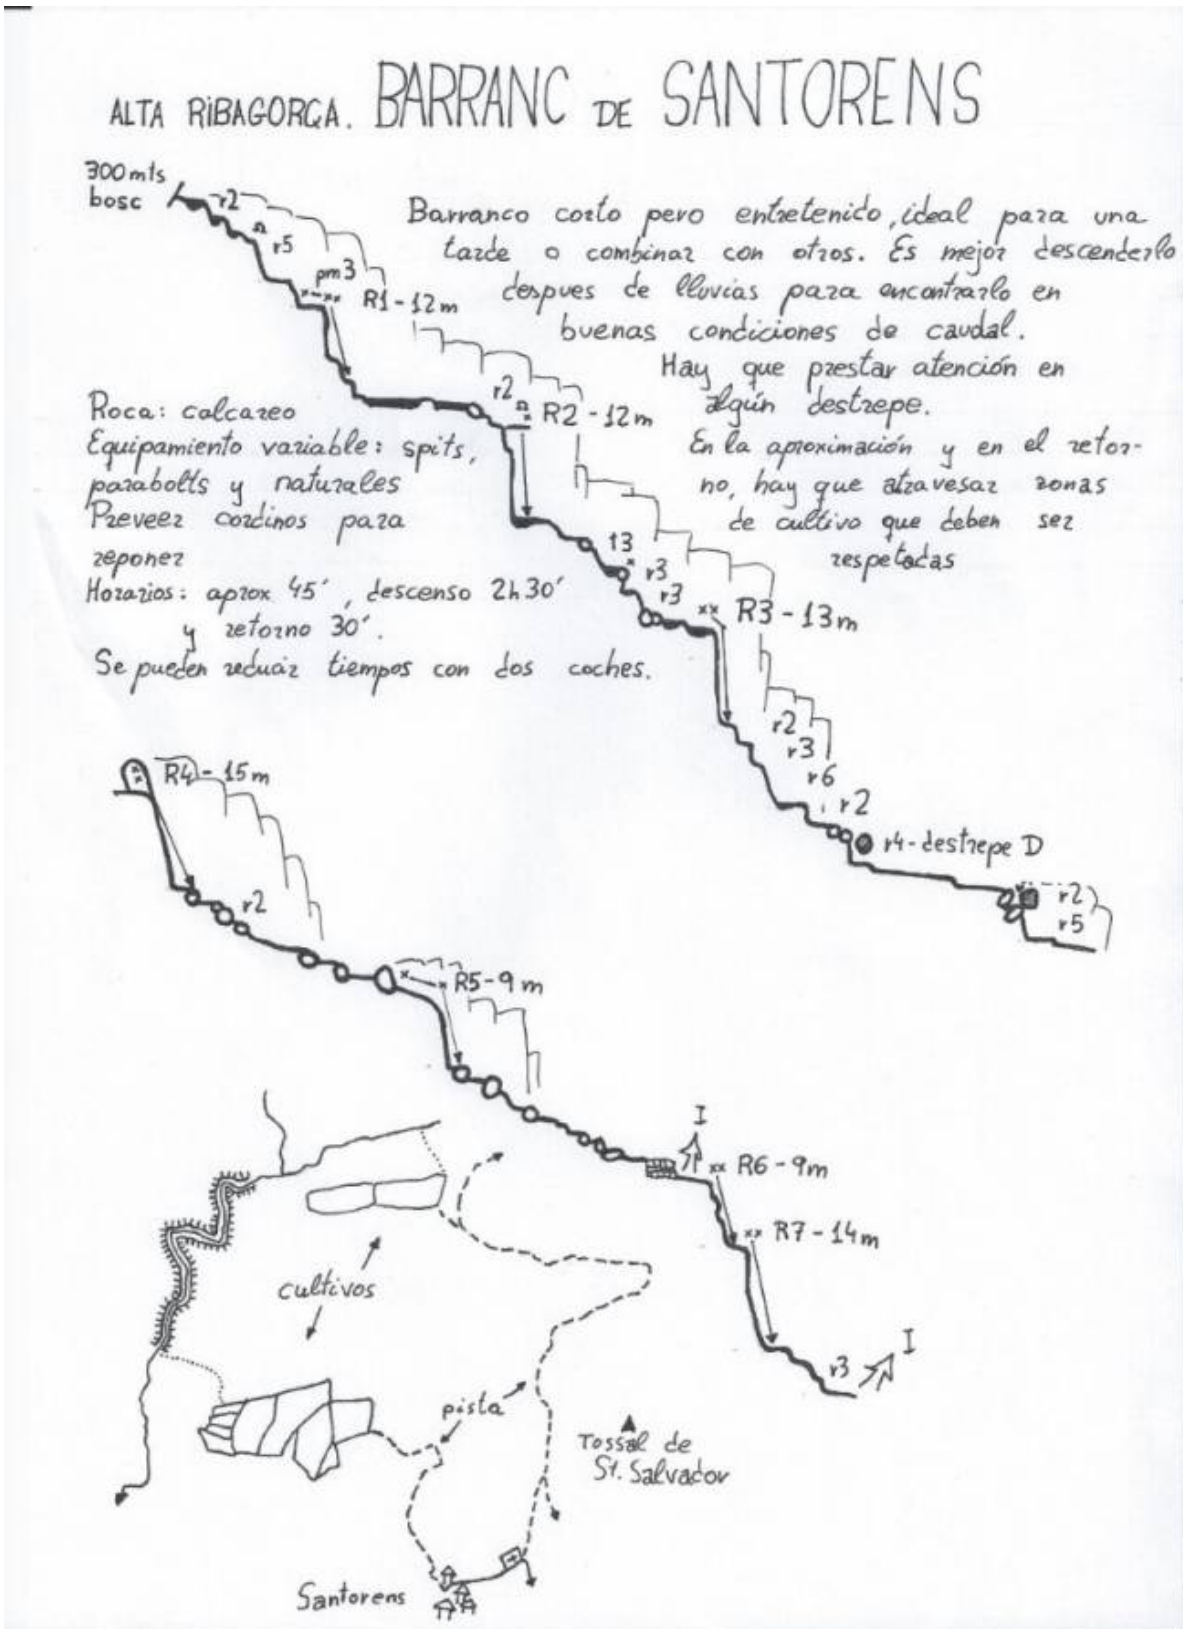 ALTA RIBAGORÇA. BARRANC DE SANTORENS
300 mts
bosc
r2
r5
pm3
R1-12m
Barranco corto pero entretenido, ideal para una
tarde o combinar con otros. Es mejor descenderlo
despues de lluvias para encontrarlo en
buenas condiciones de caudal.
Hay que prestar atención en
algún destrepe.
En la aproximación y en el retor-
no, hay que atravesar zonas
de cultivo que deben ser
respetadas
r2
R2-12m
Roca: calcareo
Equipamiento variable: spits,
parabolts y naturales
Preveer cordinos para
reponer
Horarios: aprox 45', descenso 2h30'
y retorno 30'.
Se pueden reducir tiempos con dos coches.
t3
r3
r3
R3-13m
r2
r3
r6
r2
r4-destrepe D
r2
r5
R4-15m
r2
R5-9m
I
R6-9m
R7-14m
r3
I
cultivos
pista
Tossal de
St. Salvador
Santorens